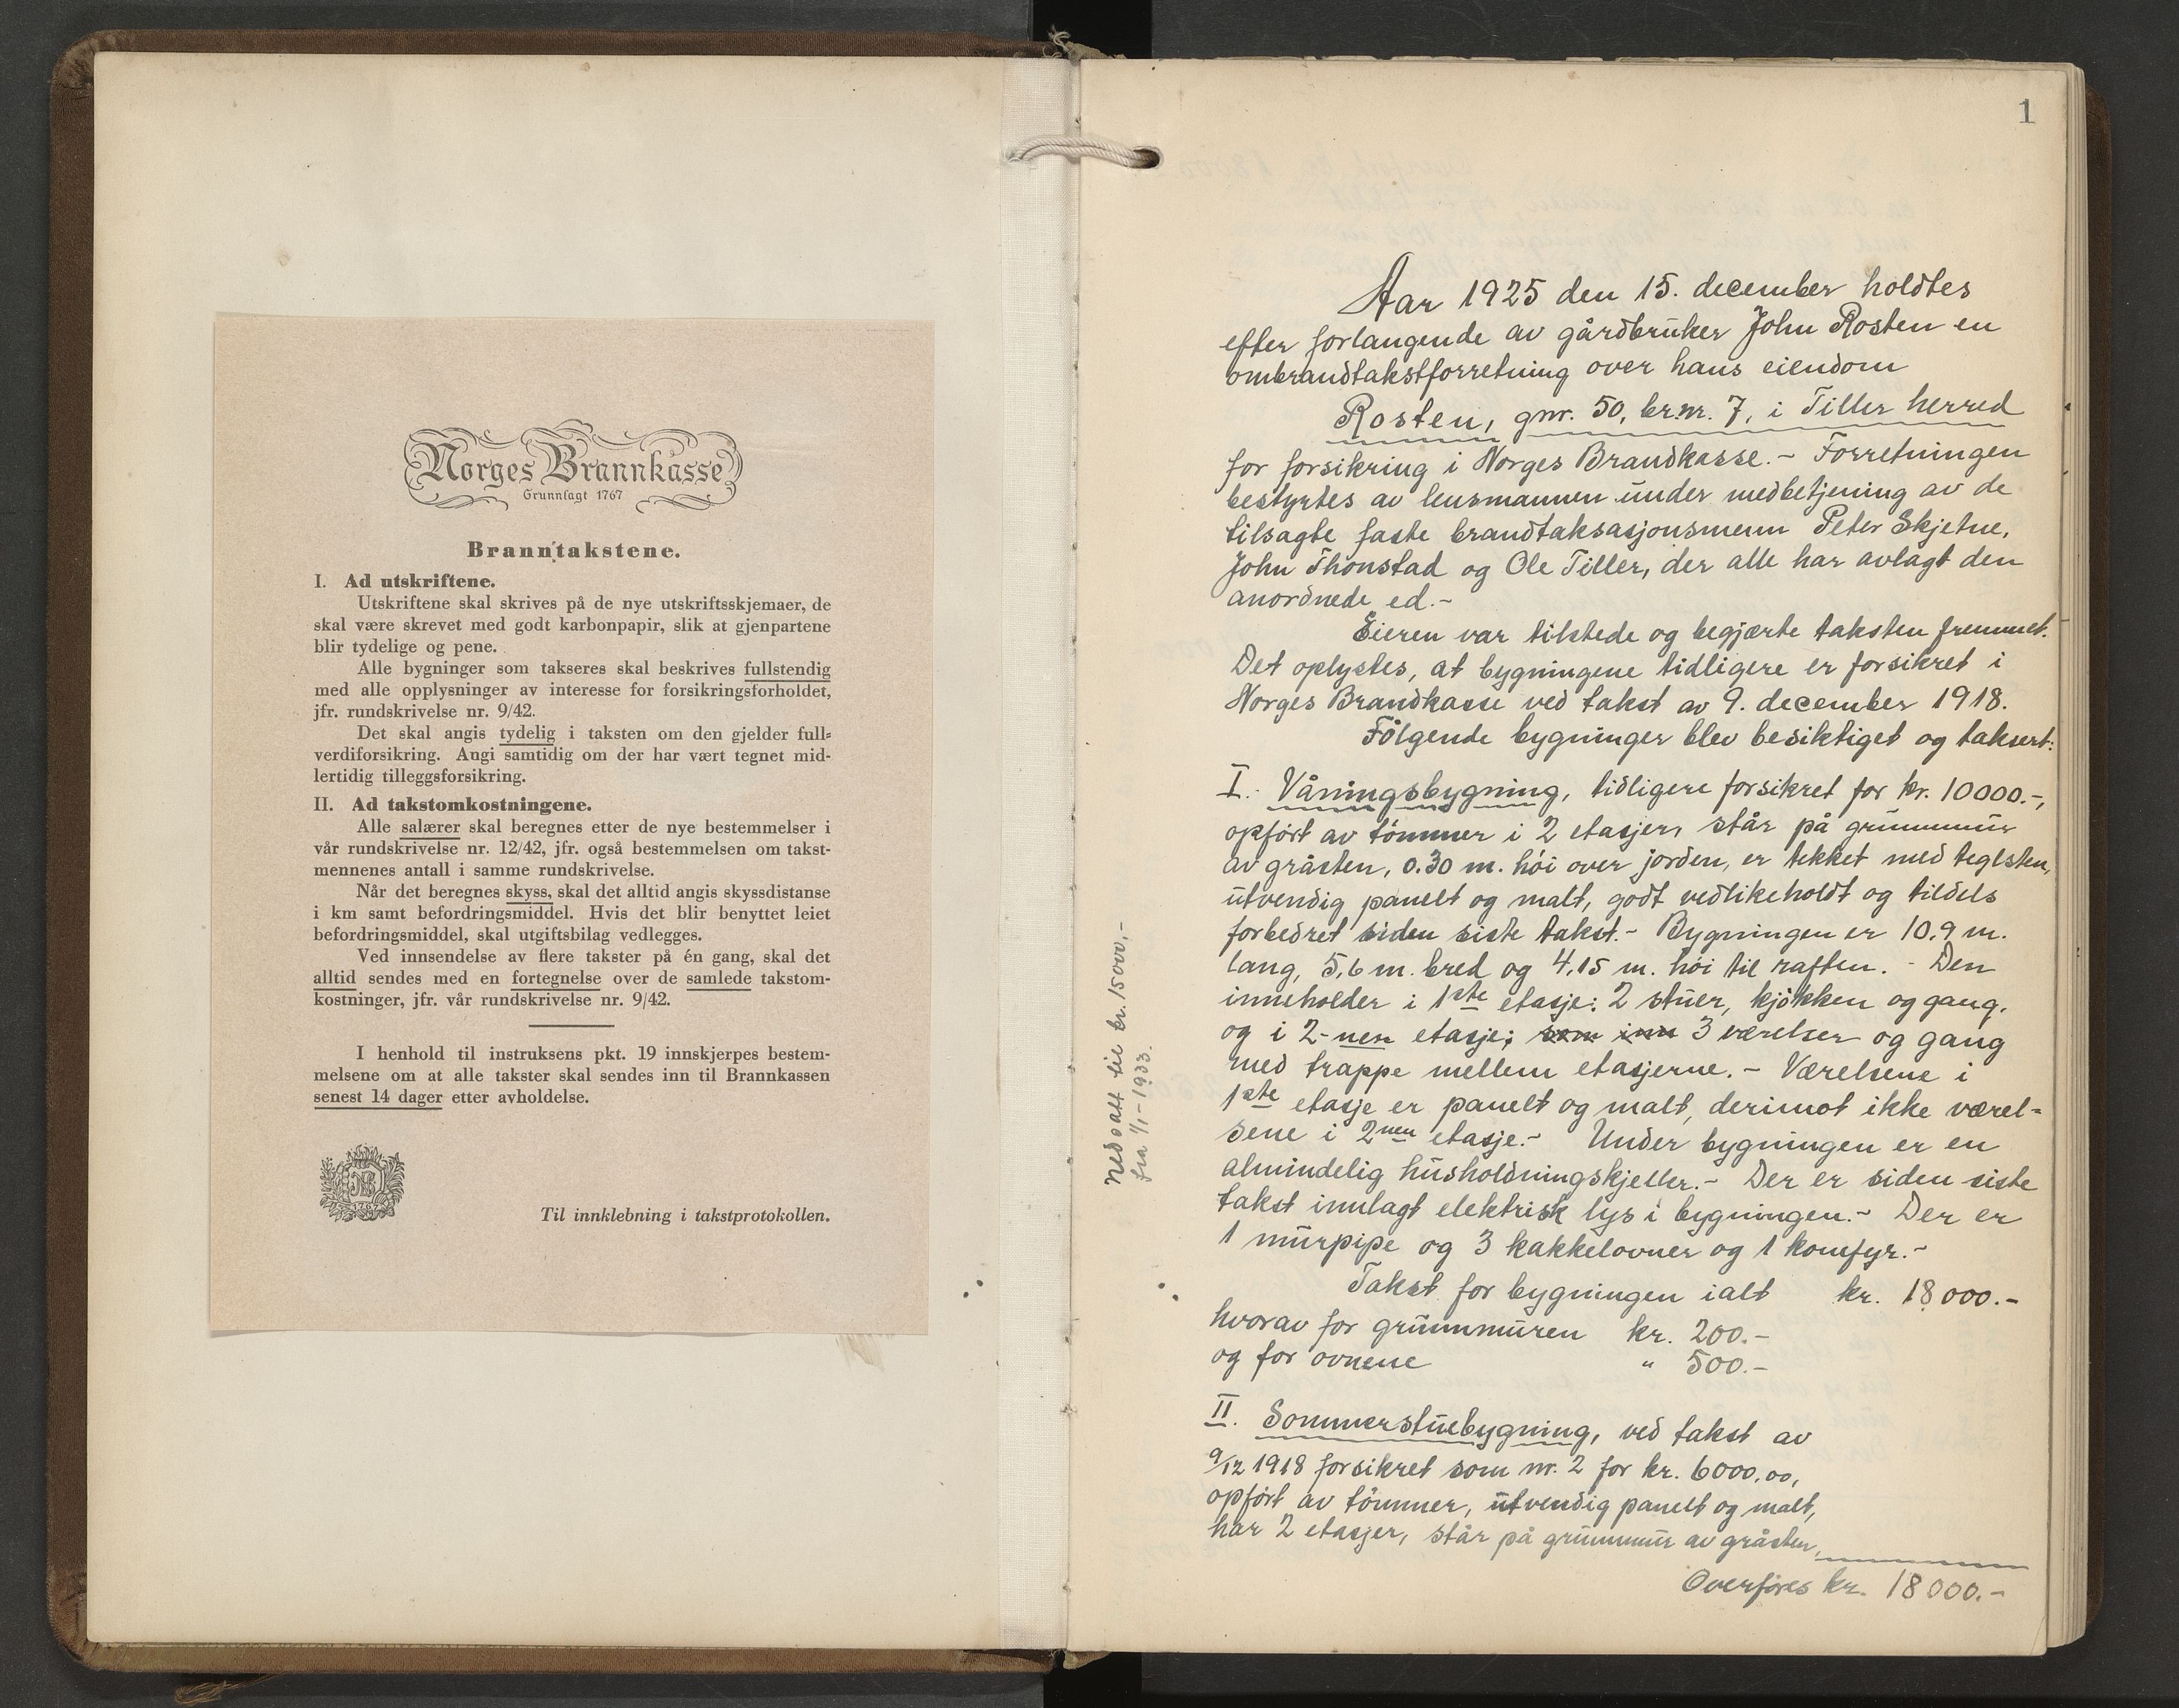 Norges Brannkasse
Grunnlagt 1767
Branntakstene.
I. Ad utskriftene.
Utskriftene skal skrives på de nye utskriftsskjemaer, de
skal være skrevet med godt karbonpapir, slik at gjenpartene
blir tydelige og pene.
Alle bygninger som takseres skal beskrives fullstendig
med alle opplysninger av interesse for forsikringsforholdet,
jfr. rundskrivelse nr. 9/42.
Det skal angis tydelig i taksten om den gjelder full-
verdiforsikring. Angi samtidig om der har vært tegnet mid-
lertidig tilleggsforsikring.
II. Ad takstomkostningene.
Alle salærer skal beregnes etter de nye bestemmelser i
vår rundskrivelse nr. 12/42, jfr. også bestemmelsen om takst-
mennenes antall i samme rundskrivelse.
Når det beregnes skyss, skal det alltid angis skyssdistanse
i km samt befordringsmiddel. Hvis det blir benyttet leiet
befordringsmiddel, skal utgiftsbilag vedlegges.
Ved innsendelse av flere takster på én gang, skal det
alltid sendes med en fortegnelse over de samlede takstom-
kostninger, jfr. vår rundskrivelse nr. 9/42.
I henhold til instruksens pkt. 19 innskjerpes bestem-
melsene om at alle takster skal sendes inn til Brannkassen
senest 14 dager etter avholdelse.
NB
1767
Til innklebning i takstprotokollen.
1
Aar 1925 den 15. december holdtes
efter forlangende av gårdbruker John Rosten en
ombrandtakstforretning over hans eiendom
Rosten, gnr. 50, br.nr. 7, i Tiller herred
for forsikring i Norges Brandkasse.- Forretningen
bestyrtes av lensmannen under medbetjening av de
tilsagte faste brandtaksasjonsmenn Peter Skjetne,
John Thonstad og Ole Tiller, der alle har avlagt den
anordnede ed.-
Eieren var tilstede og begjærte taksten fremmet.
Det oplystes, at bygningene tidligere er forsikret i
Norges Brandkasse ved takst av 9. december 1918.
Følgende bygninger blev besiktiget og taksert:
I. Våningsbygning, tidligere forsikret for kr. 10000.-,
opført av tømmer i 2 etasjer, står på grunnmur
av gråsten, 0.30 m. høi over jorden, er tekket med teglsten,
utvendig panelt og malt, godt vedlikeholdt og tildels
forbedret siden siste takst.- Bygningen er 10,9 m.
lang, 5,6 m. bred og 4,15 m. høi til raften. - Den
inneholder i 1ste etasje: 2 stuer, kjøkken og gang,
og i 2-nen etasje; som inn 3 værelser og gang
med trappe mellem etasjerne.- Værelsene i
1ste etasje er panelt og malt, derimot ikke værel=
sene i 2nen etasje.- Under bygningen er en
almindelig husholdningskjeller.- Der er siden siste
takst innlagt elektrisk lys i bygningen.- Der er
1 murpipe og 3 kakkelovner og 1 komfyr.-
Takst for bygningen ialt kr. 18000.-
hvorav for grunnmuren kr. 200.-
og for ovnene " 500.-
II. Sommerstuebygning, ved takst av
9/12 1918 forsikret som nr. 2 for kr. 6000,00,
opført av tømmer, utvendig panelt og malt,
har 2 etasjer, står på grunnmur av gråsten,
Overføres kr. 18000.-
Nedsatt til kr. 15000.-
fra 1/1-1933.